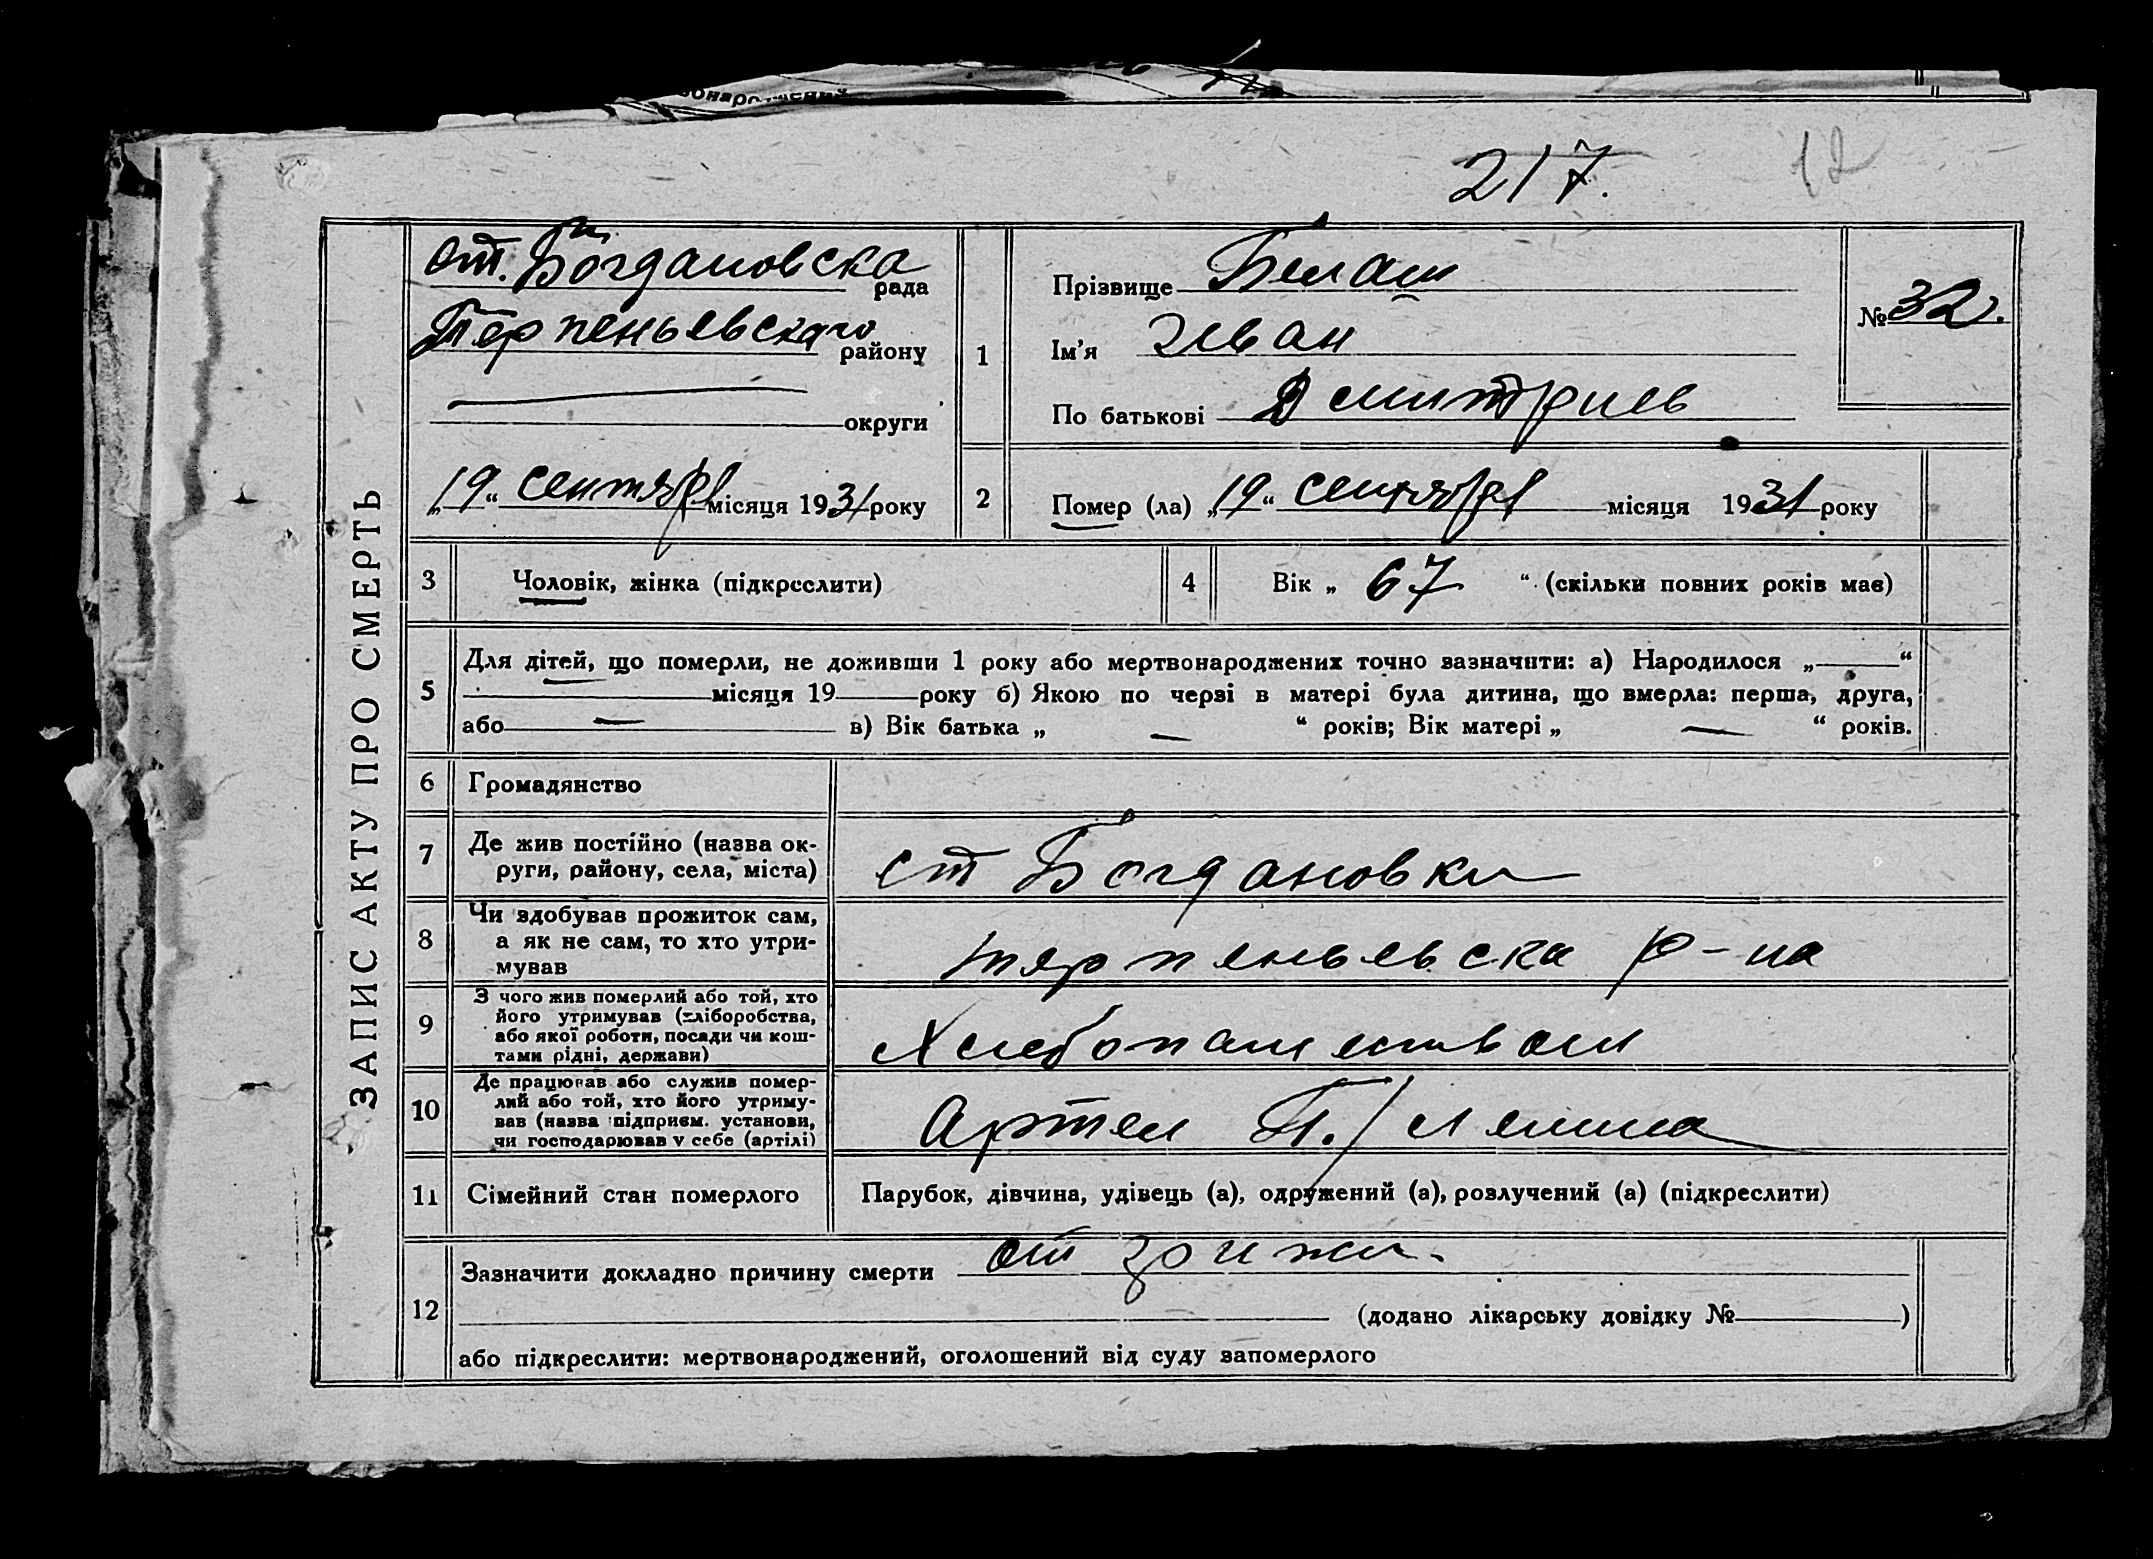 217.
12
ЗАПИС АКТУ ПРО СМЕРТЬ
ст. Богдановска
рада
Терпеньевскаго
району
округи
„19“ сентября місяця 1931 року
1
Прізвище Белаш
Ім'я Иван
По батькові Дмитриев
№ 32.
2
Помер (ла) „19“ сентября місяця 1931 року
3 Чоловік, жінка (підкреслити)
4 Вік „ 67 “ (скільки повних років має)
5
Для дітей, що померли, не доживши 1 року або мертвонароджених точно зазначити: а) Народилося „ — “
місяця 19 року б) Якою по черзі в матері була дитина, що вмерла: перша, друга,
або — в) Вік батька „ — “ років; Вік матері „ — “ років.
6 Громадянство
7
Де жив постійно (назва ок-
руги, району, села, міста)
ст Богдановки
8
Чи здобував прожиток сам,
а як не сам, то хто утри-
мував
терпеньевска р-на
9
З чого жив померлий або той, хто
його утримував (хліборобства,
або якої роботи, посади чи кош-
тами рідні, держави)
Хлебопашеством
10
Де працював або служив помер-
лий або той, хто його утриму-
вав (назва підприєм. установи,
чи господарював у себе (артілі)
Артел Ленина
11 Сімейний стан померлого
Парубок, дівчина, удівець (а), одружений (а), розлучений (а) (підкреслити)
12
Зазначити докладно причину смерти от грижи.
(додано лікарську довідку № )
або підкреслити: мертвонароджений, оголошений від суду запомерлого